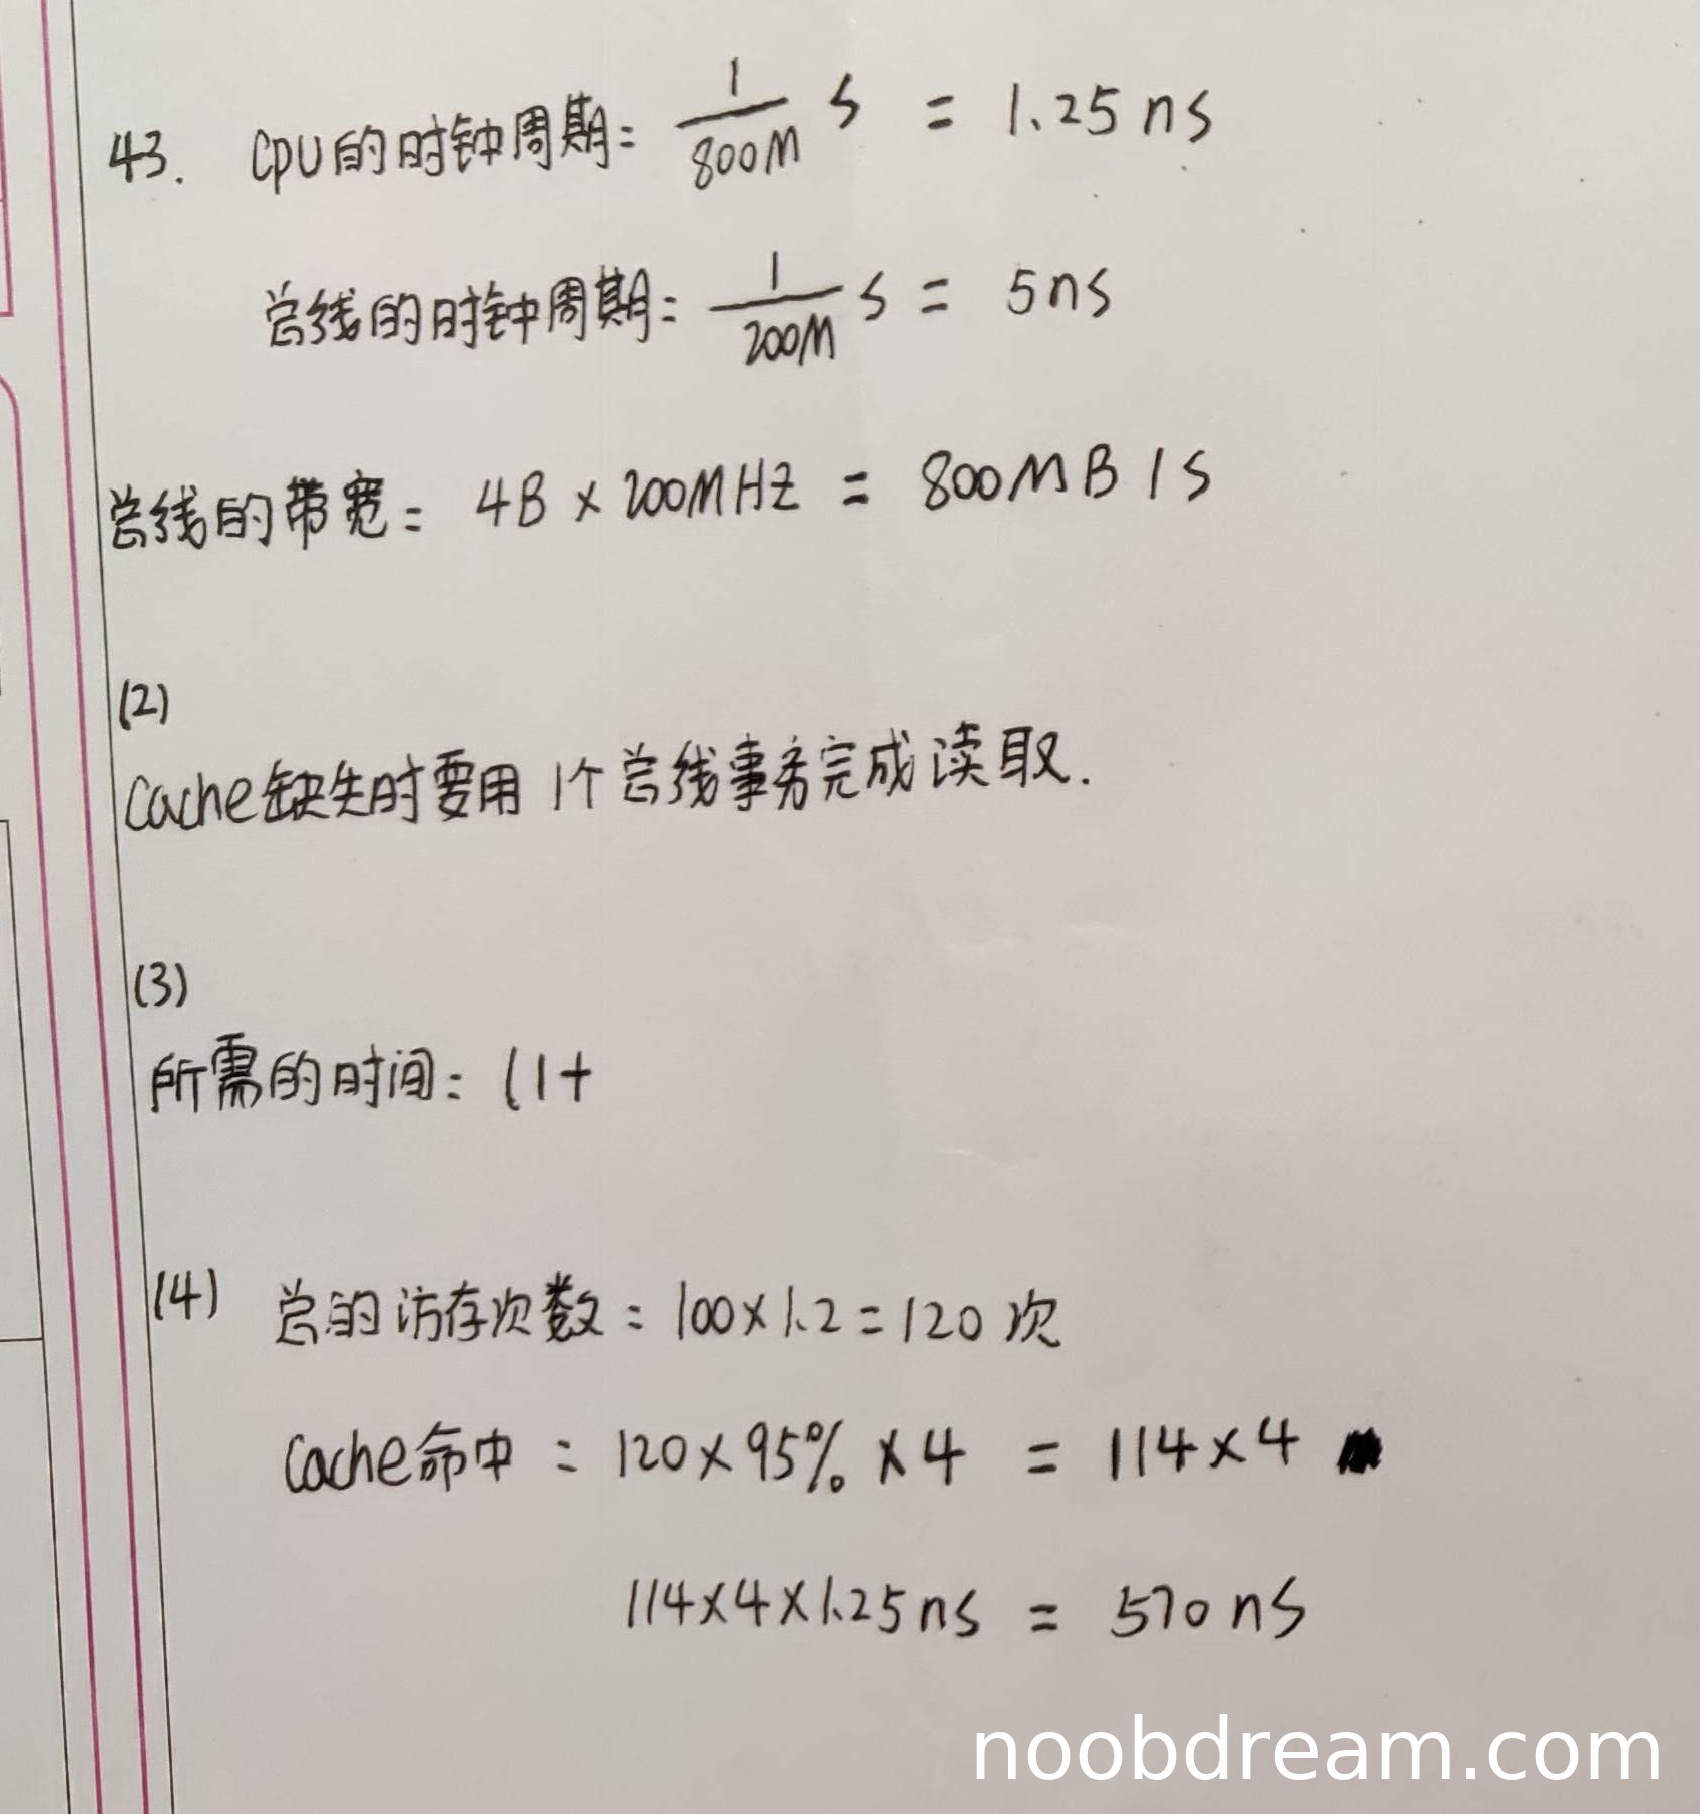 43. CPU的时钟周期: 1/800M s = 1.25ns
总线的时钟周期: 1/200M s = 5ns
总线的带宽: 4B × 200MHZ = 800MB/s
(2)
Cache缺失时要用 1个总线事务完成读取.
(3)
所需的时间: (1+
(4) 总的访存次数: 100×1.2=120次
Cache命中: 120×95%×4 = 114×4
114×4×1.25ns = 570ns
noobdream.com